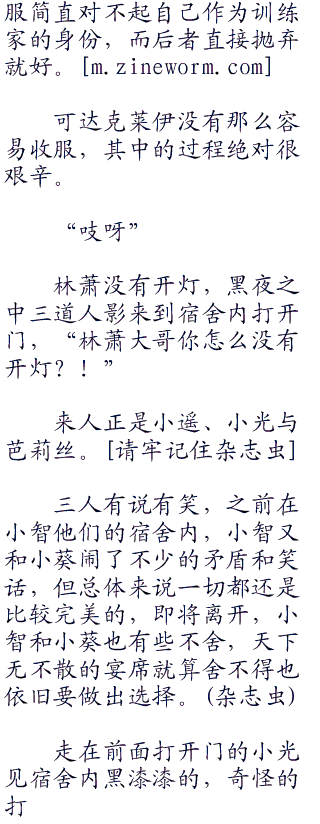 服简直对不起自己作为训练
家的身份，而后者直接抛弃
就好。[m.zineworm.com]
可达克莱伊没有那么容
易收服，其中的过程绝对很
艰辛。
“吱呀”
林萧没有开灯，黑夜之
中三道人影来到宿舍内打开
门，“林萧大哥你怎么没有
开灯？！”
来人正是小遥、小光与
芭莉丝。[请牢记住杂志虫]
三人有说有笑，之前在
小智他们的宿舍内，小智又
和小葵闹了不少的矛盾和笑
话，但总体来说一切都还是
比较完美的，即将离开，小
智和小葵也有些不舍，天下
无不散的宴席就算舍不得也
依旧要做出选择。(杂志虫)
走在前面打开门的小光
见宿舍内黑漆漆的，奇怪的
打